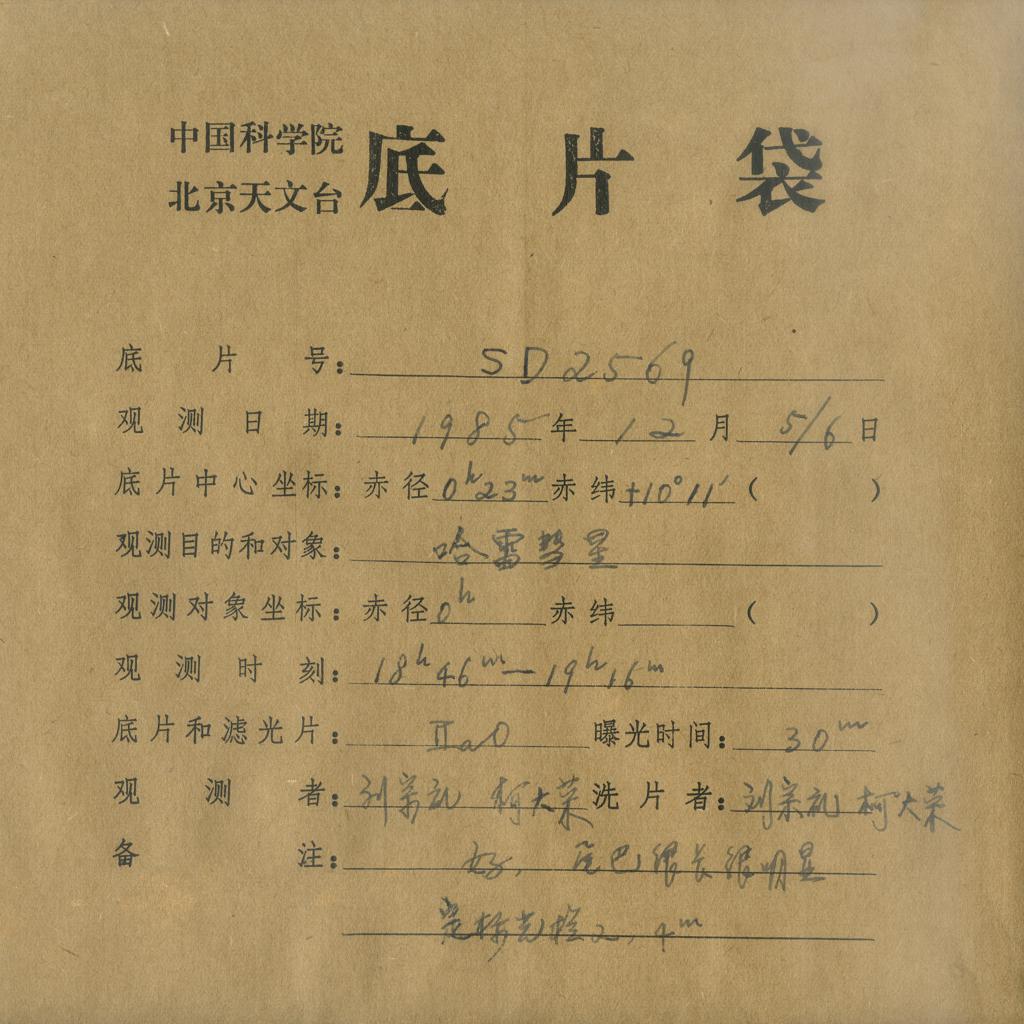 中国科学院
北京天文台
底片袋
底片号：SD2569
观测日期：1985年12月5/6日
底片中心坐标：赤径0h23m赤纬+10°11′（ ）
观测目的和对象：哈雷彗星
观测对象坐标：赤径0h 赤纬 （ ）
观测时刻：18h46m—19h16m
底片和滤光片：IIaO 曝光时间：30m
观测者：刘宗礼 柯大荣 洗片者：刘宗礼 柯大荣
备注：好，尾巴很长很明显
定标光楔2，4m